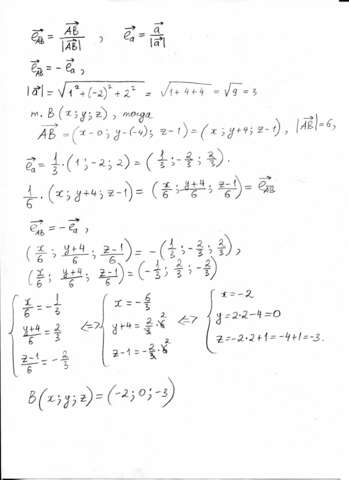 e⃗_AB = AB⃗/|AB⃗| , e⃗_a = a⃗/|a⃗|
e⃗_AB = -e⃗_a ,
|a⃗| = √(1² + (-2)² + 2²) = √(1+4+4) = √9 = 3
т. B (x; y; z) , тогда
AB⃗ = (x-0; y-(-4); z-1) = (x; y+4; z-1) , |AB⃗| = 6,
e⃗_a = 1/3 · (1; -2; 2) = (1/3; -2/3; 2/3).
1/6 · (x; y+4; z-1) = (x/6; (y+4)/6; (z-1)/6) = e⃗_AB
e⃗_AB = -e⃗_a ,
(x/6; (y+4)/6; (z-1)/6) = -(1/3; -2/3; 2/3) ,
(x/6; (y+4)/6; (z-1)/6) = (-1/3; 2/3; -2/3)
{ x/6 = -1/3 ⇔ { x = -6/3 ⇔ { x = -2
(y+4)/6 = 2/3 y+4 = 2/3 · 6 2 y = 2·2-4 = 0
(z-1)/6 = -2/3 z-1 = -2/3 · 6 2 z = -2·2+1 = -4+1 = -3.
B (x; y; z) = (-2; 0; -3)